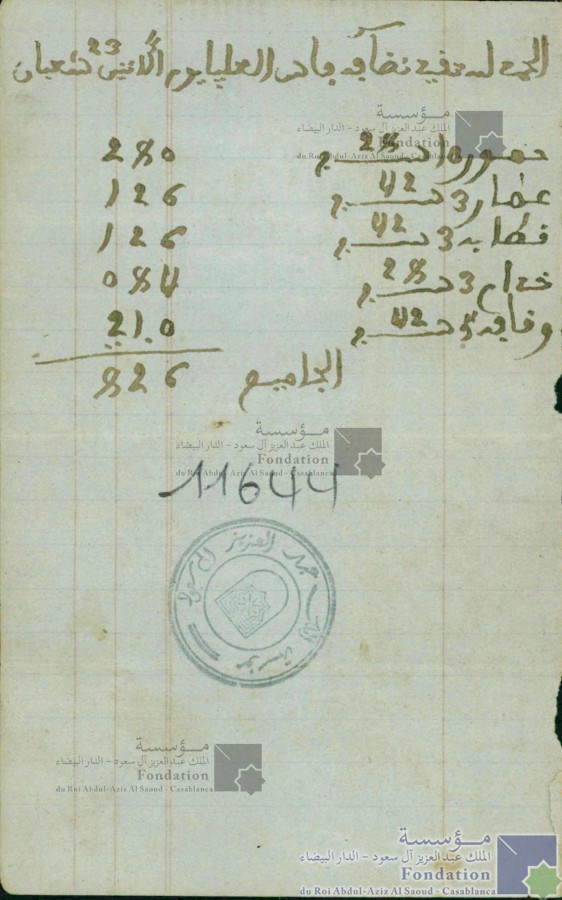 الحمد لله تقييد يوم الاثنين 23 شعبان
10 28 280
عطار 3 42 126
3 42 126
خدام 3 28 084
وقافة 5 42 210
الجاميع 826
11644
مؤسسة الملك عبد العزيز آل سعود
مؤسسة
الملك عبد العزيز آل سعود - الدار البيضاء
Fondation
du Roi Abdul-Aziz Al Saoud - Casablanca
مؤسسة
الملك عبد العزيز آل سعود - الدار البيضاء
Fondation
du Roi Abdul-Aziz Al Saoud - Casablanca
مؤسسة
الملك عبد العزيز آل سعود - الدار البيضاء
Fondation
du Roi Abdul-Aziz Al Saoud - Casablanca
مؤسسة
الملك عبد العزيز آل سعود - الدار البيضاء
Fondation
du Roi Abdul-Aziz Al Saoud - Casablanca